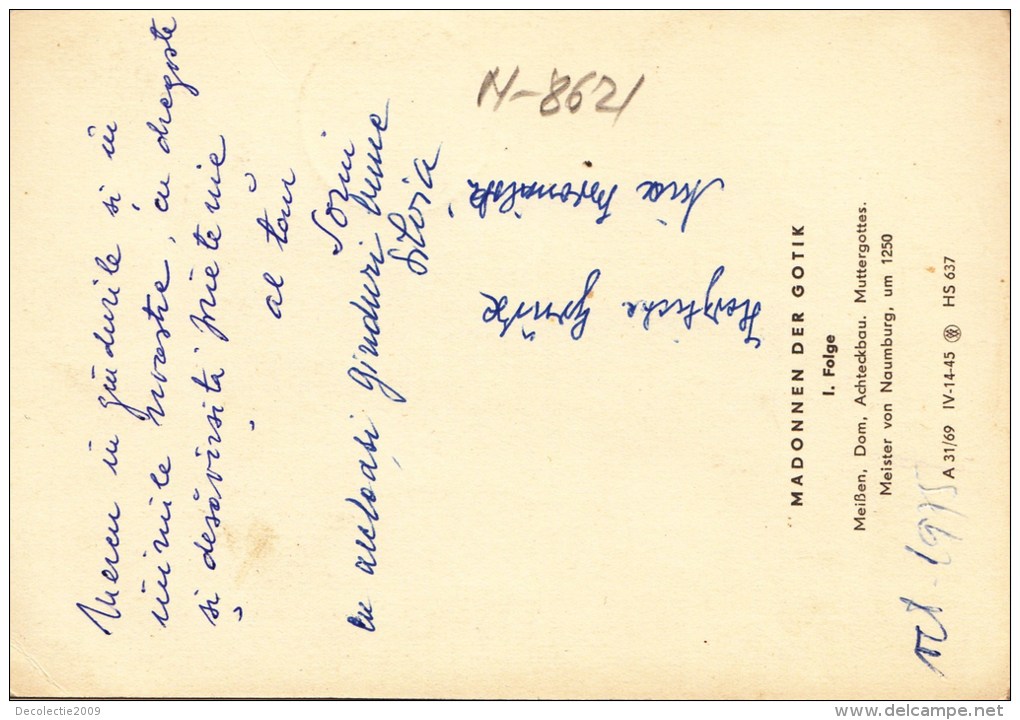 Mereu în gîndurile și în
inimile noastre, cu dragoste
și desăvîrsită prietenie
al tău
Sorin
cu aceleasi gînduri bune
Silvia
N-8621
Herzliche Grüße
MADONNEN DER GOTIK
I. Folge
Meißen, Dom, Achteckbau. Muttergottes.
Meister von Naumburg, um 1250
A 31/69 IV-14-45 HS 637
oct - 1975
Decolectie2009
www.delcampe.net